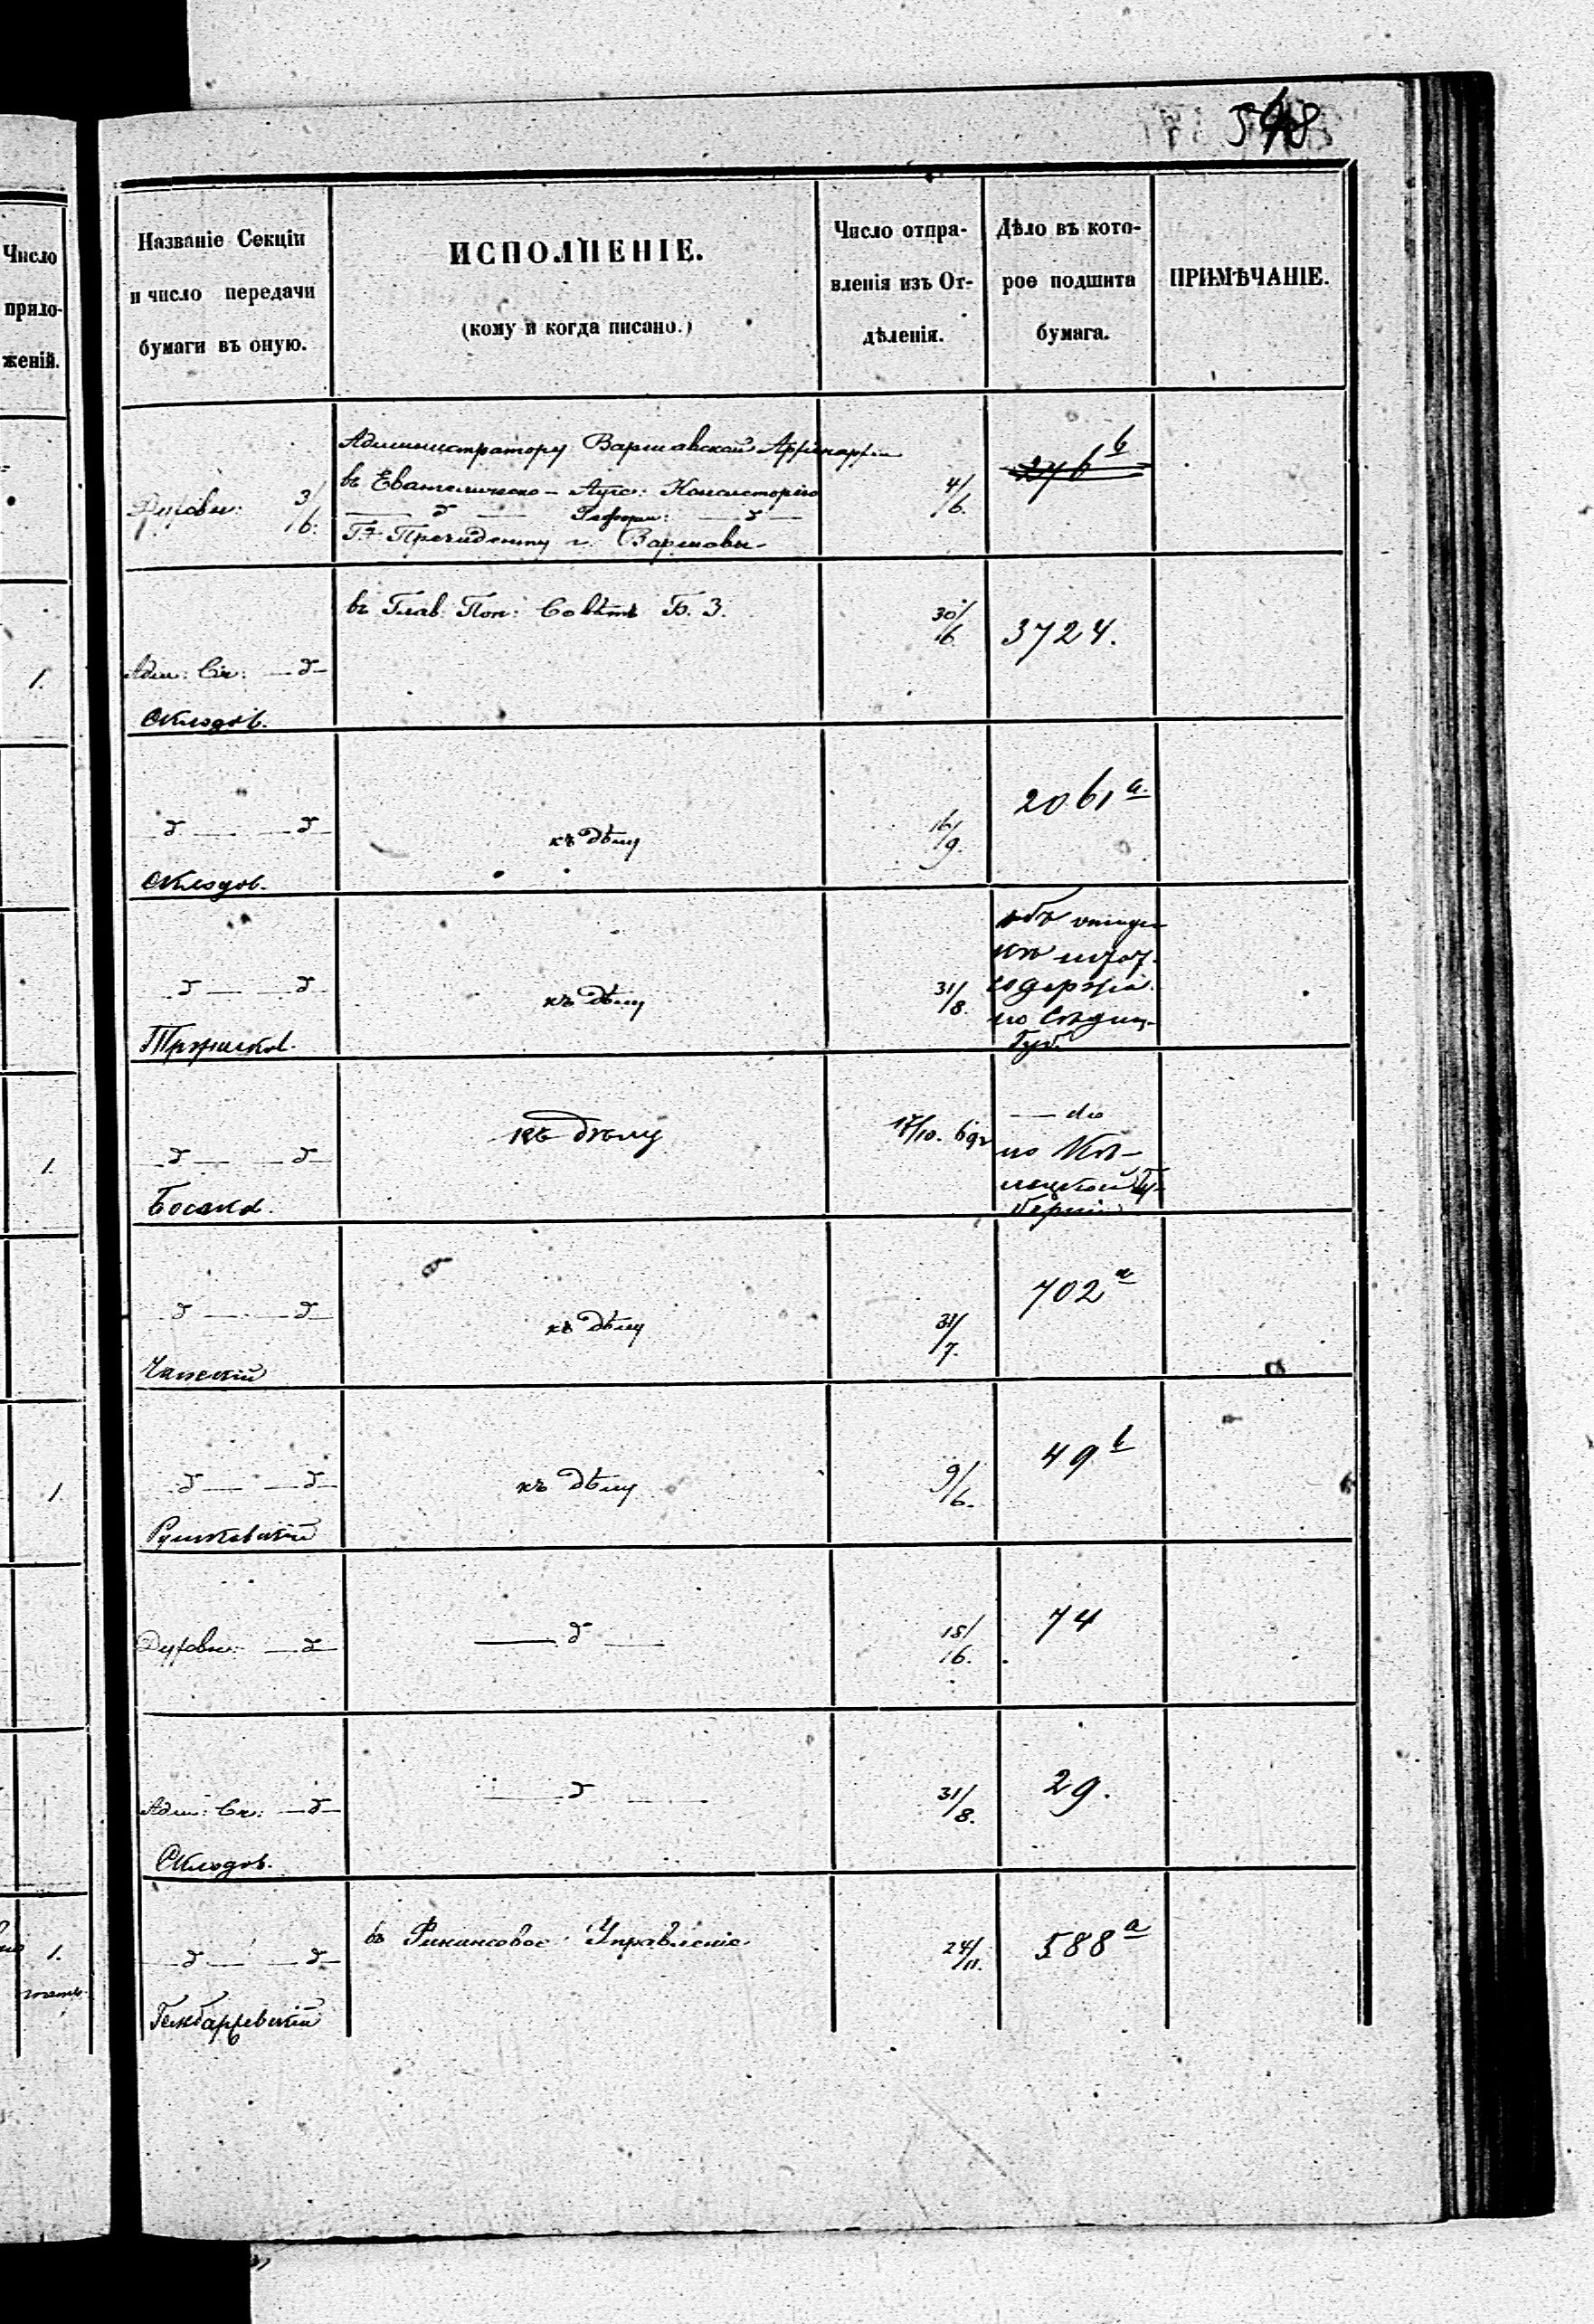 548
Число
прило-
женій.
Названіе Секціи
и число передачи
бумаги въ оную.
ИСПОЛНЕНІЕ.
(кому и когда писано.)
Число отпра-
вленія изъ От-
дѣленія.
Дѣло въ кото-
рое подшита
бумага.
ПРИМѢЧАНІЕ.
Духовн: 3/6.
Администратору Варшавской
въ Евангелическо-Аугс: Консисторію
— д — Реформ: — д —
Гну Президенту г. Варшавы
4/6.
276 b
1.
Адм: Ск: — д —
Склодов.
въ Глав. Поп: Совѣтъ Б. З.
30/6
3724.
— д — — д —
Склодов.
къ дѣлу
16/9.
2061 a
— д — — д
къ дѣлу
31/8.
объ
содержа
по
Губ.
1.
— д — — д —
къ дѣлу
17/10.
— do
по Кѣ-
лецкой Гу-
берніи
— д — — д —
Чапскій
къ дѣлу
31/7.
702 a
1.
— д — — д —
къ дѣлу
9/6.
49 b
Духовн: — д —
— д —
18/6.
74
Адм: Ск: — д —
Склодов.
— д —
31/8.
29.
1.
— д — — д —
въ Финансовое Управленіе
24/11.
588 a